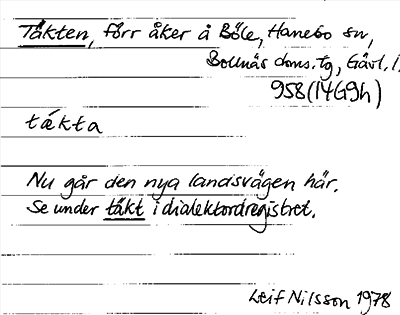 Täkten, förr åker å Böle, Hanebo sn,
Bollnäs doms.tg, Gävl. l.
958 (14G9h)
tækta
Nu går den nya landsvägen här.
Se under täkt i dialektordregistret.
Leif Nilsson 1978